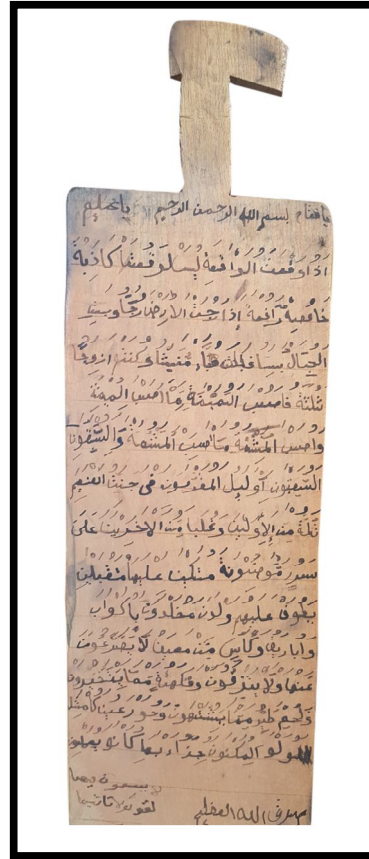 يا فتاح بسم الله الرحمن الرحيم يا عليم
اذا وقعت الواقعة ليس لوقعتها كاذبة
خافضة رافعة إذا رجت الارض رجا وبست
الجبال بسا فكانت هباء منبثا وكنتم ازوجا
ثلثة فاصحب الميمنة ما اصحب الميمنة
واصحب المشئمة ما اصحب المشئمة والسبقون
السبقون أوليك المقربون في جنت النعيم
ثلة من الاولين وقليل من الاخرين على
سرر موضونة متكين عليها متقبلين
يطوف عليهم ولدن مخلدون باكواب
واباريق وكأس من معين لا يصدعون
عنها ولا ينزفون وفكهة مما يتخيرون
ولحم طير مما يشتهون وحور عين كامثل
اللولو المكنون جزاء بما كانوا يعملون
لا يسمعون فيها
لغوا ولا تاثيما
صدق الله العظيم